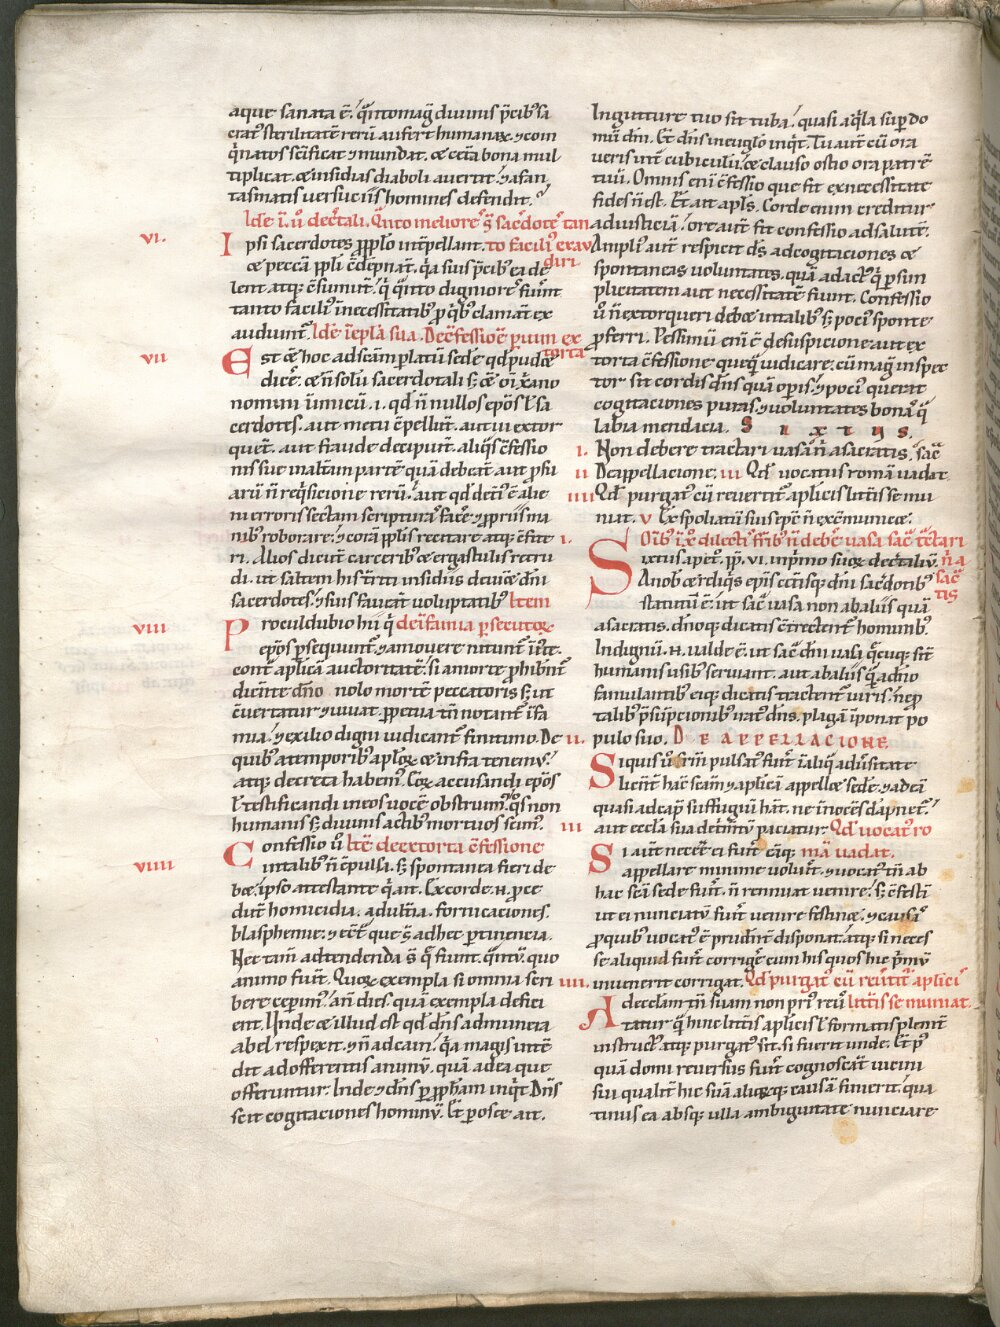 aque sanata ē. q̄ntomag̃ diuinis p̄cib; sa
crat᷒ sterilitatē rerū aufert humanaꝝ. ⁊ con
q̄natos sc̄ificat ⁊ mundat. & cet̄a bona mul
tiplicat. & insidias diaboli auertit. ⁊ afan
tasmatis uersuciis homines defendit.
Idē ī. ii. dec̄tali. Q̄nto meliorē s̄ sac̄dotē tan
VI.
Ipsi sacerdotes ꝓpplo int̄pellant. to faciliꝰ exau
& peccā ppli c̄dep̄nat̄. q̄a suis p̄cib; ea de diri
lent. atq; c̄sumūt. q̄ q̄nto digniorē fiunt
tanto faciliꝰ īnecessitatib; ꝓ q̄b; clamant ex
audiunt̄. Idē ī ep̄la sua. De c̄fessionē p uim ex
torta
VII
Est & hoc ad sc̄am platū sedē qd̄ pud&
dicē. & n̄ solū sacerdotali s; & oī xp̄iano
nomini inimicū. i. qd̄ n̄nullos ep̄os l sa
cerdotes. aut metu c̄pellunt. aut ui extor
quet. aut fraude decipiunt. aliq̄s c̄fessio
nis siue malū in partē quā debeāt. aut p̄su
arū n̄ req̄sicione rerū. aut qd̄ det̄i ē alie
ni erroris sectam scripturā facē. ⁊ ꝓpriis ma
nib; roborare. ⁊ corā pplis recitare atq; c̄fite
ri. Alios dicūt carcerib; & ergastulis retru
di. ut saltem his t̄riti insidiis deuict& dn̄i
sacerdotes. ⁊ suis faueāt uoluptatib; Item
VIII
Proculdubio hii q̄ de īfamia psecutoꝝ
ep̄os p̄sequunt̄. ⁊ amouere nitunt̄ in&.
cont̄ aplicā auctoritatē. si a morte ꝓhibent̄
dicente dn̄o nolo mortē peccatoris s; ut
c̄uertatur ⁊ uiuat. ꝓpetua tn̄ notant̄ īfa
mia. ⁊ exilio digni iudicant̄ finitimo. De
quib; a temporib; aploꝝ & infra tenemꝰ.
atq; decreta habemꝰ. Coꝝ accusandi ep̄os
l testificandi in eos uocē obstruimꝰ. q̄s non
humanis s; diuinis actib; mortuos scimꝰ.
VIIII
Confessio ū Itē de extorta c̄fessione
in talib; n̄ c̄pulsa. s; spontanea fieri de
b&. ipso attestante q̄ ait. Ex corde. n. ꝓce
dūt homicidia. adult̄ia. fornicaciones.
blasphemie. ⁊ cet̄. que s̄ ad hec ptinencia.
Nec tam̄ adtendenda s̄ q̄ fiunt. q̄ntū. quo
animo fiunt. Quoꝝ exempla si omnia scri
bere cepimꝰ. an̄ dies quā exempla defici
ent. Unde & illud est qd̄ dn̄s ad munera
abel respexit. ⁊ n̄ ad cain. q̄a magis inten
dit ad offerentis animū. quā ad ea que
offeruntur. Inde ⁊ dn̄s p ꝓph̄am inq̄t Dn̄s
scit cogitaciones hominū. Et post& ait.
In gutture tuo sit tuba. quasi aq̄la sup do
mū dn̄i. Et dn̄s in eug̃lo inq̄t. Tu aut̄ cū ora
ueris intr̄ cubiculū. & clauso ostio ora patrē
tuū. Omnis eni c̄fessio que fit ex necessitate
fides n̄ est. Et. ait apl̄s. Corde enim creditur
ad iusticiā. ore aut̄ fit confessio ad salutē.
Ampliꝰ aut̄ respicit ds̄ ad cogitaciones &
spontaneas uoluntates. quā ad actꝰ q̄ p sim
plicitatem aut necessitatē fiunt. Confessio
ū n̄ extorqueri deb& in talib; s; pociꝰ sponte
ꝓferri. Pessimū eni ē de suspicione aut ex
torta c̄fessione queq̄ iudicare. cū mag̃ inspec
tor sit cordis dn̄s quā opis. ⁊ pociꝰ querat
cogitaciones puras. ⁊ uoluntates bonaꝰ q̄
labia mendacia. SIXTUS.
I. Non debere tractari uasa n̄ a sacratis. sac̄
II De appellacione. III Qd̄ uocatus romā uadat
IIII Qd̄ purgat᷒ cū reuertit̄ aplicis litt̄is se mu
niat. V Ex spoliatū siui sep̄e n̄ excōmunice.
I.
Oīb; ī xp̄o dilecti fr̄ib; n̄ debē uasa sac̄ t̄ctari
Sixtus ap̄ et pp̄. VI. in p̄imo suoꝝ dec̄taliū. n̄ a
A nob & reliq̄s ep̄is cet̄isq; dn̄i sac̄dotib; sac̄
statutū ē. ut sac̄ uasa non ab aliis quā tis
a sacratis. dn̄oq; dicatis c̄trectent̄ hominib;
Indignū. n. ualde ē. ut sac̄ dn̄i uasi q̄cuq; st̄
humanis usib; seruiant. aut ab aliis q̄ a dn̄o
famulantib; eiq; dicatis tractent̄ uiris. n̄ ꝓ
talib; p̄sūpcionib; irat dn̄s. plagā īponat po
pulo suo. DE APPELLACIONE
II.
Siquis ūr̄m pulsat᷒ fuit īaliq̄ ad ū̄sitate
licent̄ hac scām ⁊ aplicā appell& sedē. ⁊ ad eā
quasi ad cap̄ suffugiū hāt. ne inoc̄es dāpnet̄.
aut ecclā sua det̄mt̄ū paciatur. Qd̄ uocat᷒ ro
III
Si aut̄ necē ei fuit cāq; mā uadat.
appellare minime uoluit. ⁊ uocat᷒ tn̄ ab
hac scā sede fuit. n̄ rennuat uenire. s; c̄festi
ut ei nunciatū fuit uenire festin&. ⁊ causaꝰ
ꝓ quib; uocat᷒ ē prudent̄ disponat. atq; si neces
se aliquid fuit corrigē cum his quos hic p̄mꝰ
inuenerit corrigat. Qd̄ purgat᷒ cū reūtit̄ aplici
IIII.
Ad eccl̄am tn̄ suam non priꝰ reū litt̄is se muniat.
tatur q̄ hinc litt̄is aplicis l formatis plenit̄
instruct᷒ atq; purgat᷒ sit. si fuerit unde. Et p᷒
quā domi reuersus fuit cognoscāt uicini
sui qualit̄ hic suā aliaꝝq; causā finierit. qua
tinus ea absq; ulla ambiguitate nunciare